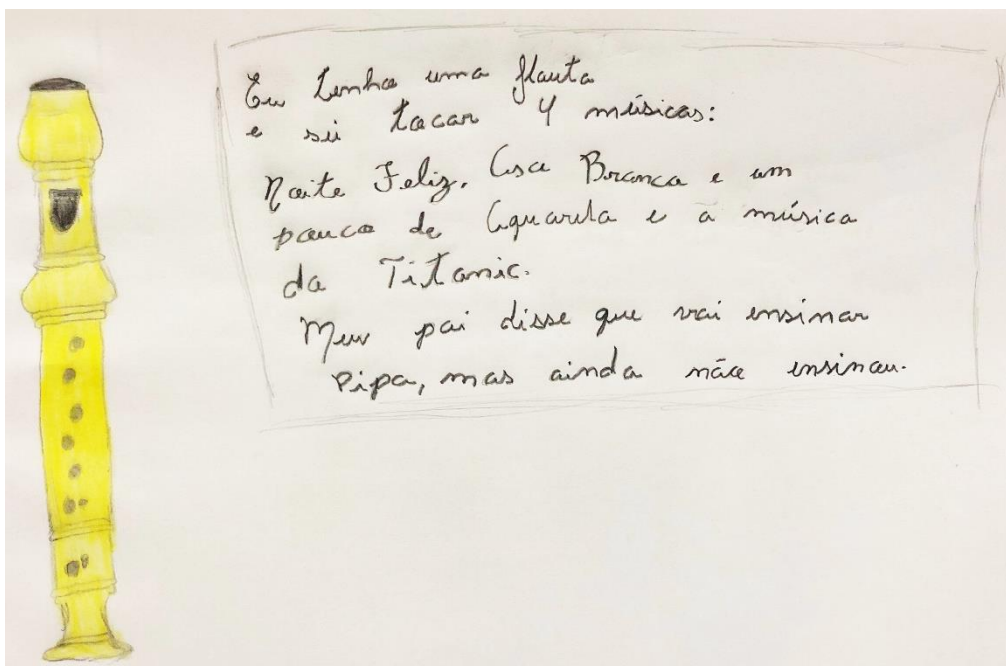 Eu tenho uma flauta
e sei tocar 4 músicas:
Noite Feliz, Asa Branca e um
pouco de Aquarela e a música
do Titanic.
Meu pai disse que vai ensinar
Pipa, mas ainda não ensinou.